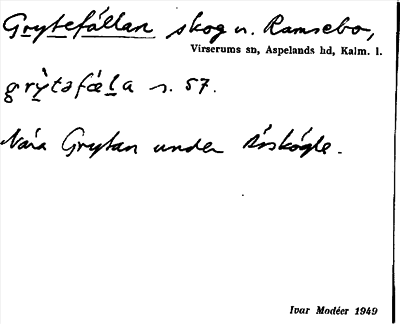 Grytefällan skog u. Ramsebo,
Virserums sn, Aspelands hd, Kalm. l.
grỳtəfæḷa s. 57.
Nära Grytan under Röskögle.
Ivar Modéer 1949